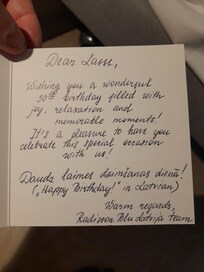 Dear Lasse,
Wishing you a wonderful
50th birthday filled with
joy, relaxation and
memorable moments!
It's a pleasure to have you
celebrate this special occasion
with us!
Daudz laimes dzimšanas dienā!
("Happy Birthday!" in Latvian)
Warm regards,
Radisson Blu Latvija team